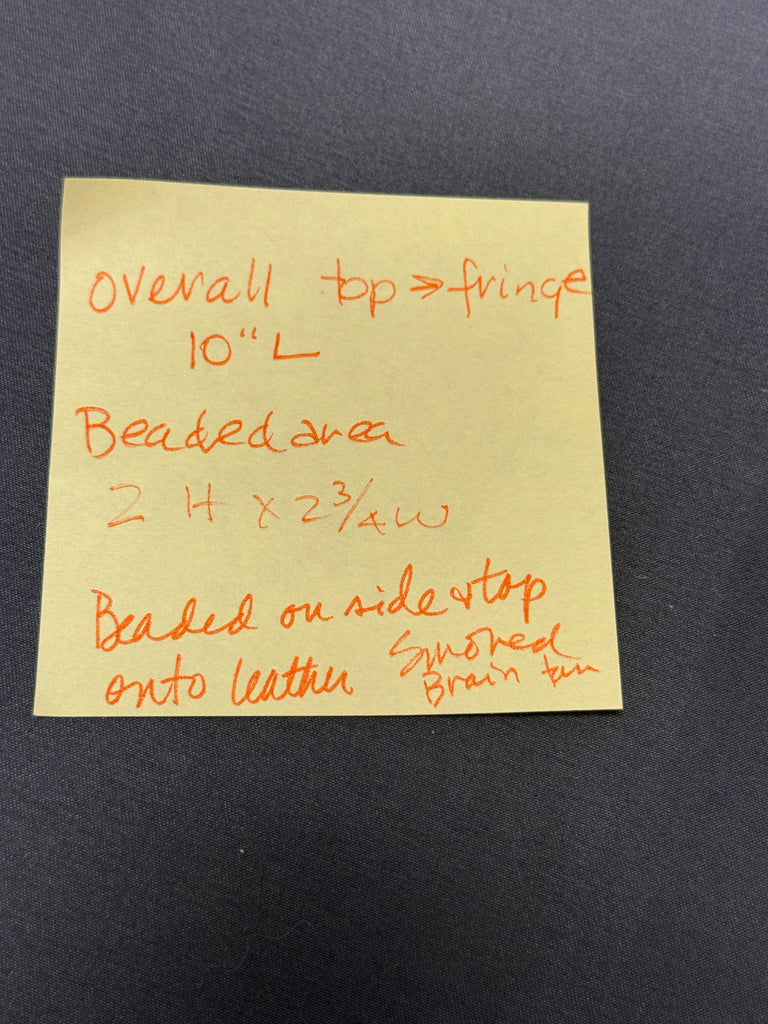 overall top → fringe
10" L
Beaded area
2 H x 2 3/4 W
Beaded on side & top
onto leather Smoked
Brain tan